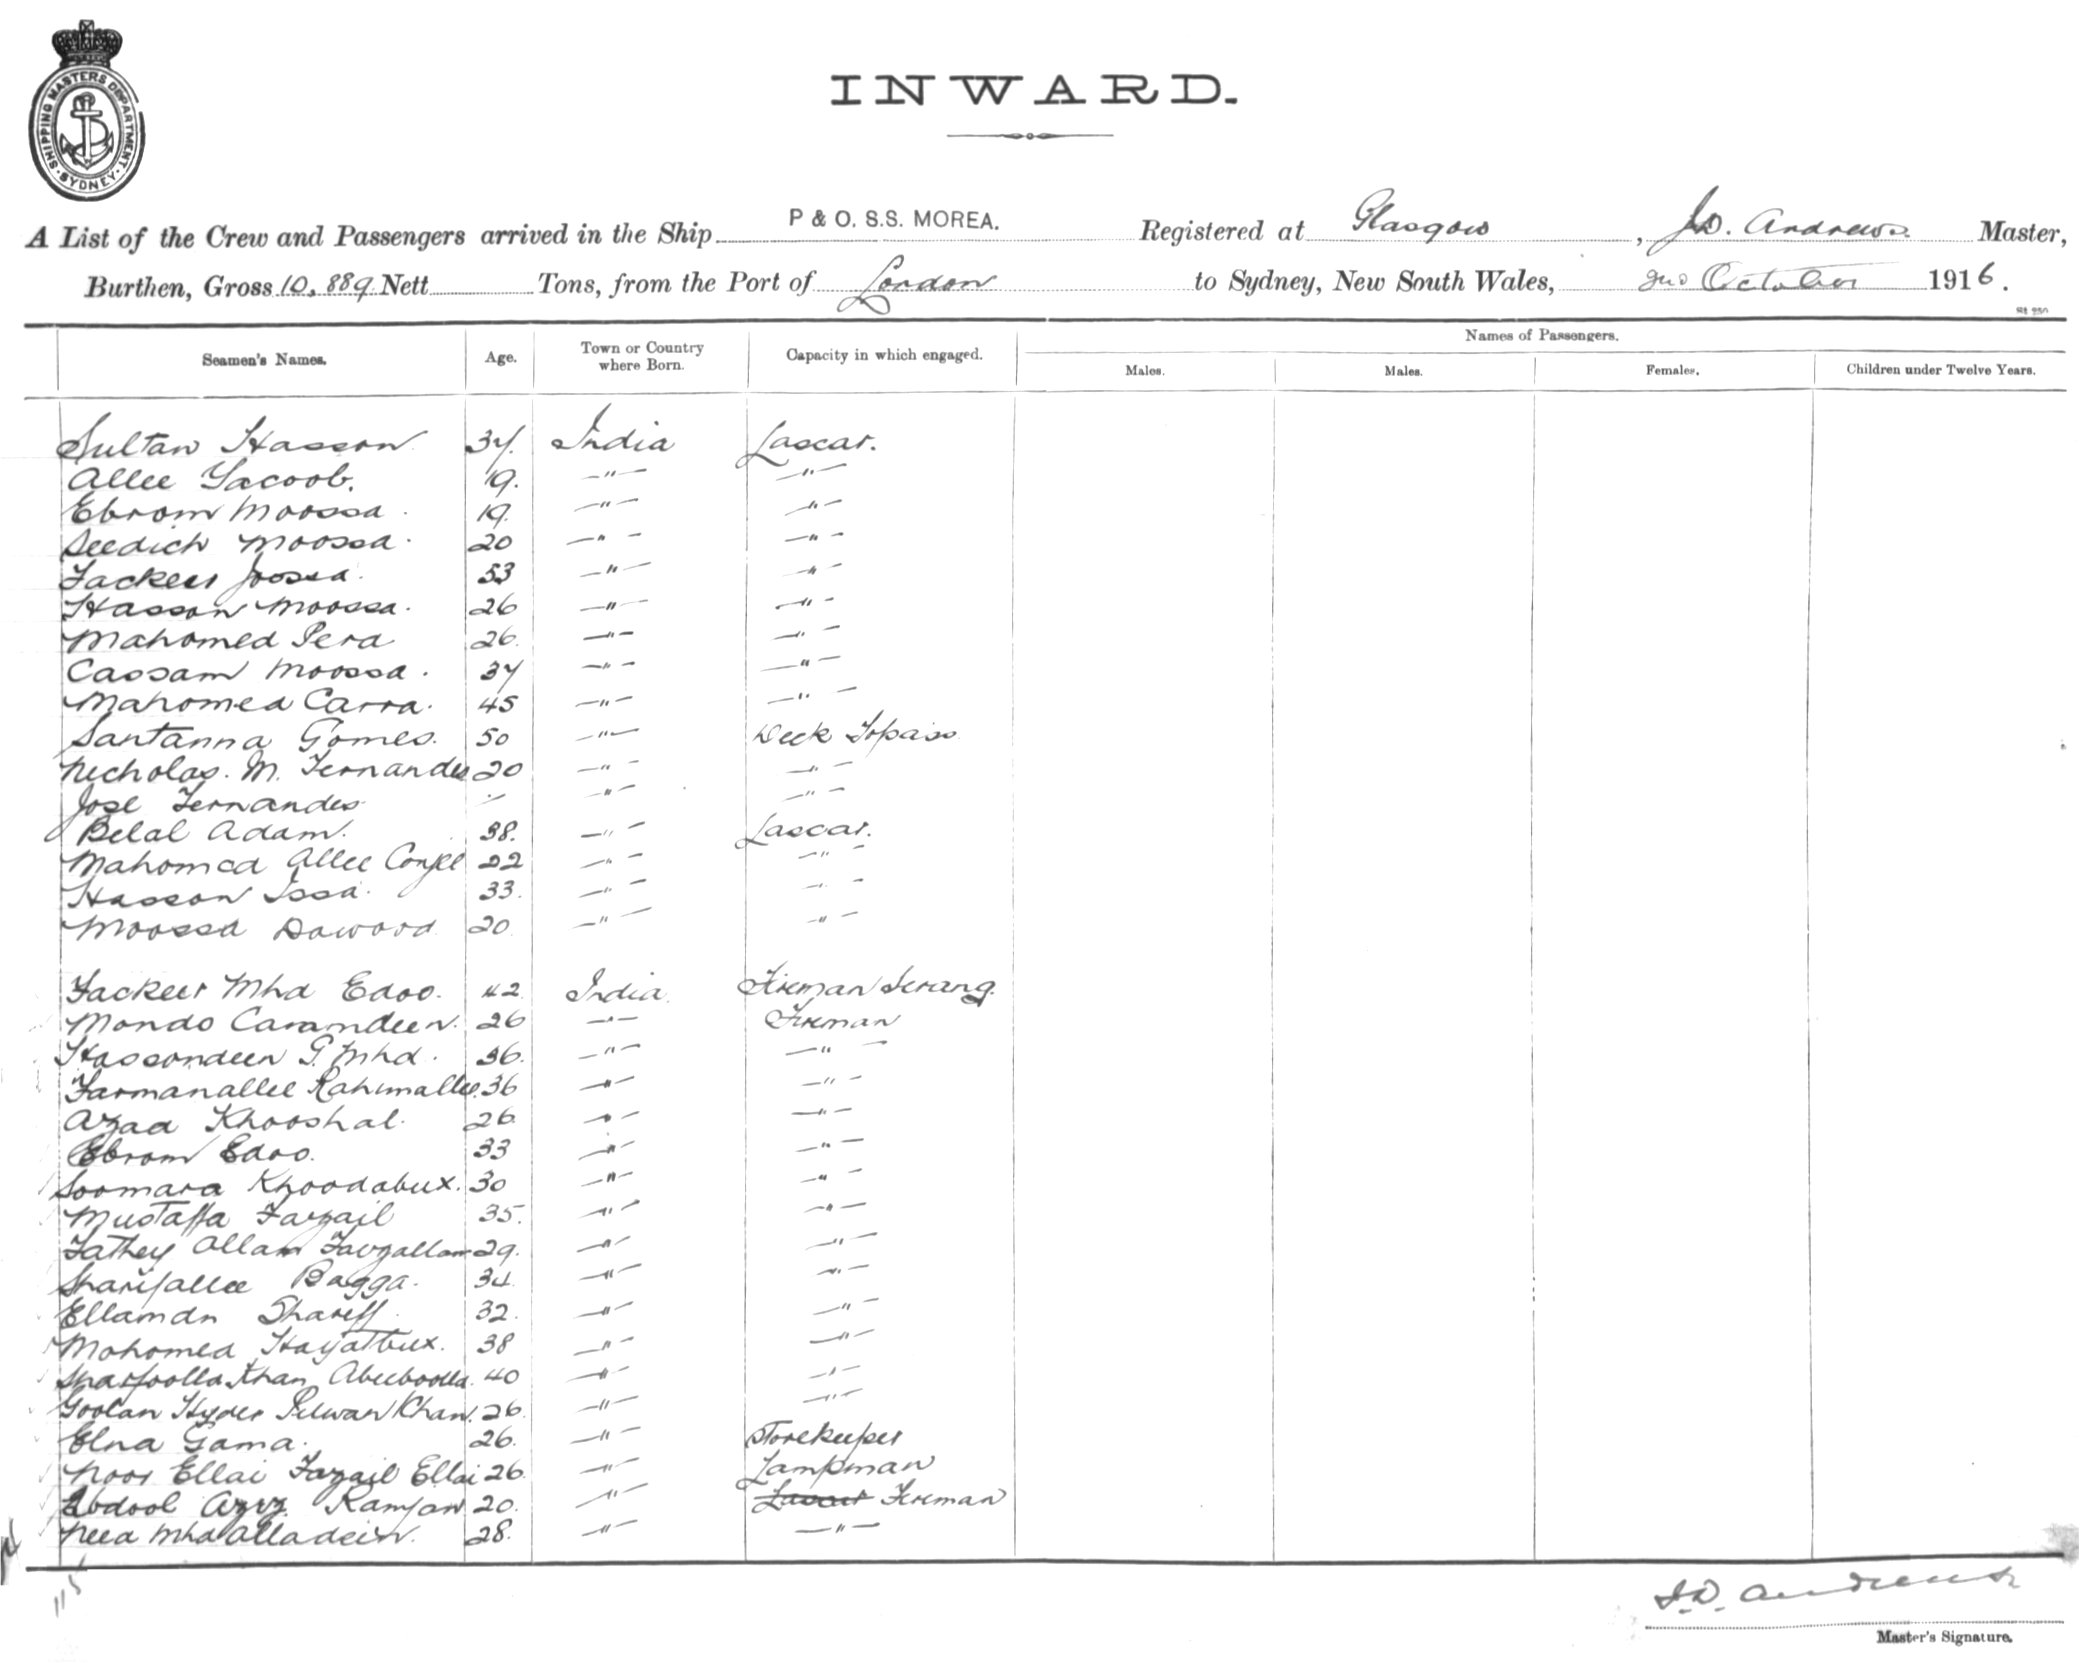 SHIPPING MASTERS DEPARTMENT. SYDNEY.
INWARD.
A List of the Crew and Passengers arrived in the Ship P & O. S.S. MOREA. Registered at Glasgow, J.D. Andrews. Master,
Burthen, Gross 10,889 Nett Tons, from the Port of London to Sydney, New South Wales, 2nd October 1916.
Names of Passengers.
Seamen's Names. Age. Town or Country where Born. Capacity in which engaged. Males. Males. Females. Children under Twelve Years.
Sultan Hasson 34. India Lascar.
Allee Yacoob. 19. -"- -"-
Ebrom Moossa. 19. -"- -"-
Seedich Moossa. 20 -"- -"-
Fackeer Joosa. 53 -"- -"-
Hasson Moossa. 26 -"- -"-
Mahomed Pera 26. -"- -"-
Cassam Moossa. 34 -"- -"-
Mahomed Carra. 45 -"- -"-
Santanna Gomes. 50 -"- Deck Topass
Necholas. M. Fernandes 20 -"- -"-
Jose Fernandes -"- -"- -"-
Belal Adam. 38. -"- Lascar.
Mahomed Allee 22 -"- -"-
Hasson Issa. 33. -"- -"-
Moossa Dawood 20 -"- -"-
Fackeer Mhd Edoo. 42 India Fireman Serang.
Mondo Caramdeen. 26 -"- Fireman
Hassondeen G. Mhd. 36. -"- -"-
Farmanallee Rahimallee. 36 -"- -"-
Azaa Khooshal. 26 -"- -"-
Ebrom Edoo. 33 -"- -"-
Soomara Khoodabux. 30 -"- -"-
Mustaffa Fazail 35. -"- -"-
Fathey Allam Fauzallam 29. -"- -"-
Sharifallee Bagga. 34 -"- -"-
Ellamdn Shareff. 32. -"- -"-
Mohomed Hayatbux. 38 -"- -"-
Sharfoolla Khan Abeeboolla. 40 -"- -"-
Goolan Hyder Pelwan Khan. 26. -"- -"-
Elna Gama. 26. -"- Storekeeper
Noor Ellai Fazail Ellai 26. -"- Lampman
Abdool Aziz Ramjan 20. -"- Lascar Fireman
Neea Mhd Alladein. 28. -"- -"-
115
J.D. Andrews
Master's Signature.